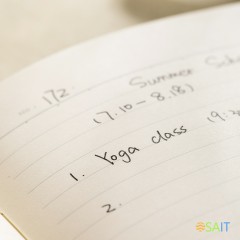 172
Summer
(7.10-8.18)
1. Yoga class
2.
SAIT